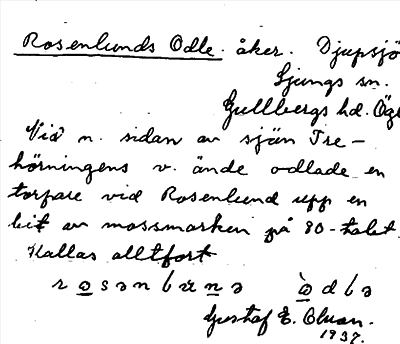 Rosenlunds Odle. åker. Djupsjö
Ljungs sn.
Gullbergs hd. Ögl
Vid n. sidan av sjön Tre-
hörningens v. ände odlade en
torpare vid Rosenlund upp en
bit av mossmarken på 80-talet.
Kallas alltfort
Gustaf E.
1937.